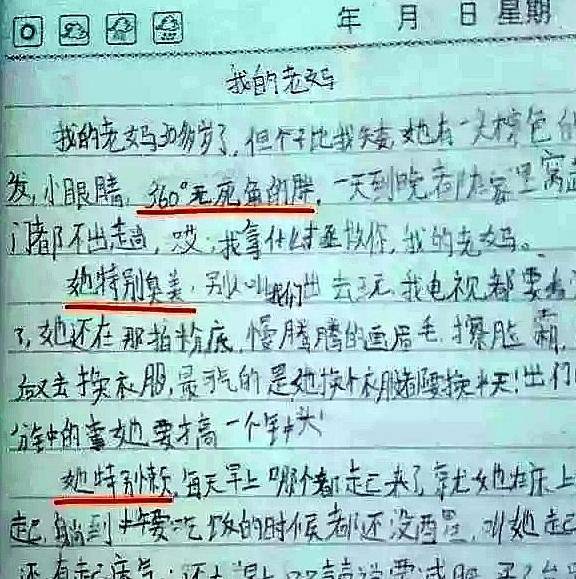 年 月 日 星期
我的老妈
我的老妈30多岁了,但个子比我矮,她有一头棕色的
发,小眼睛,360°无死角的胖,一天到晚都在家里窝
门都不出走,哎:我拿什么拯救你,我的老妈。
她特别臭美,别人叫我们出去玩,我电视都要看
了,她还在那拍粉底,慢腾腾的画眉毛,擦脸霜,
又去换衣服,最气的是她换个衣服都要换半天!出门
分钟的事她要搞一个钟头!
她特别懒,每天早上哪个都起来了,就她在床上
起,到中午要吃饭的时候都还没醒,叫她起
还有起床气;还